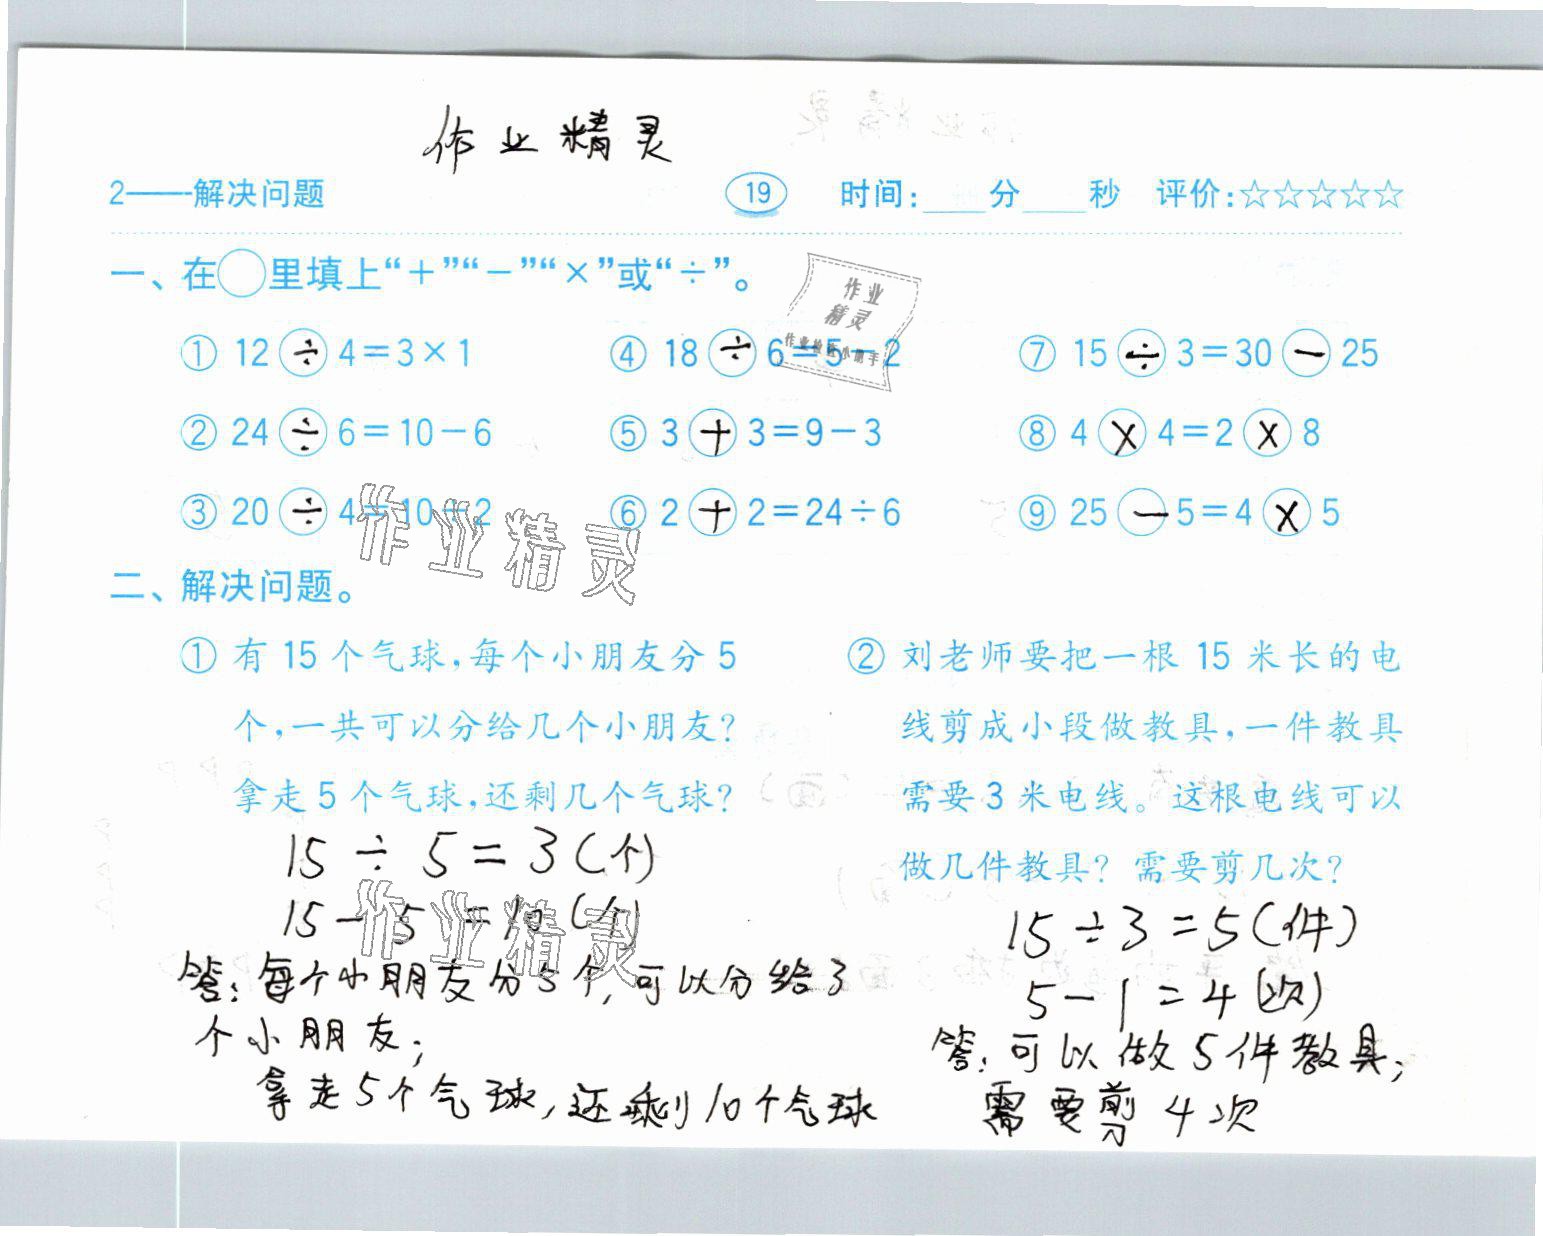 作业精灵
2——解决问题 19 时间:____分____秒 评价:☆☆☆☆☆
一、在○里填上“＋”“－”“×”或“÷”。
作业
精灵
作业检查小助手
① 12÷4=3×1 ④ 18÷6=5-2 ⑦ 15÷3=30-25
② 24÷6=10-6 ⑤ 3+3=9-3 ⑧ 4×4=2×8
③ 20÷4=10÷2 ⑥ 2+2=24÷6 ⑨ 25-5=4×5
作业精灵
二、解决问题。
① 有15个气球,每个小朋友分5
个,一共可以分给几个小朋友?
拿走5个气球,还剩几个气球?
15÷5=3(个)
15-5=10(个)
作业精灵
答:每个小朋友分5个,可以分给3
个小朋友;
拿走5个气球,还剩10个气球
② 刘老师要把一根15米长的电
线剪成小段做教具,一件教具
需要3米电线。这根电线可以
做几件教具? 需要剪几次?
15÷3=5(件)
5-1=4(次)
答:可以做5件教具;
需要剪4次